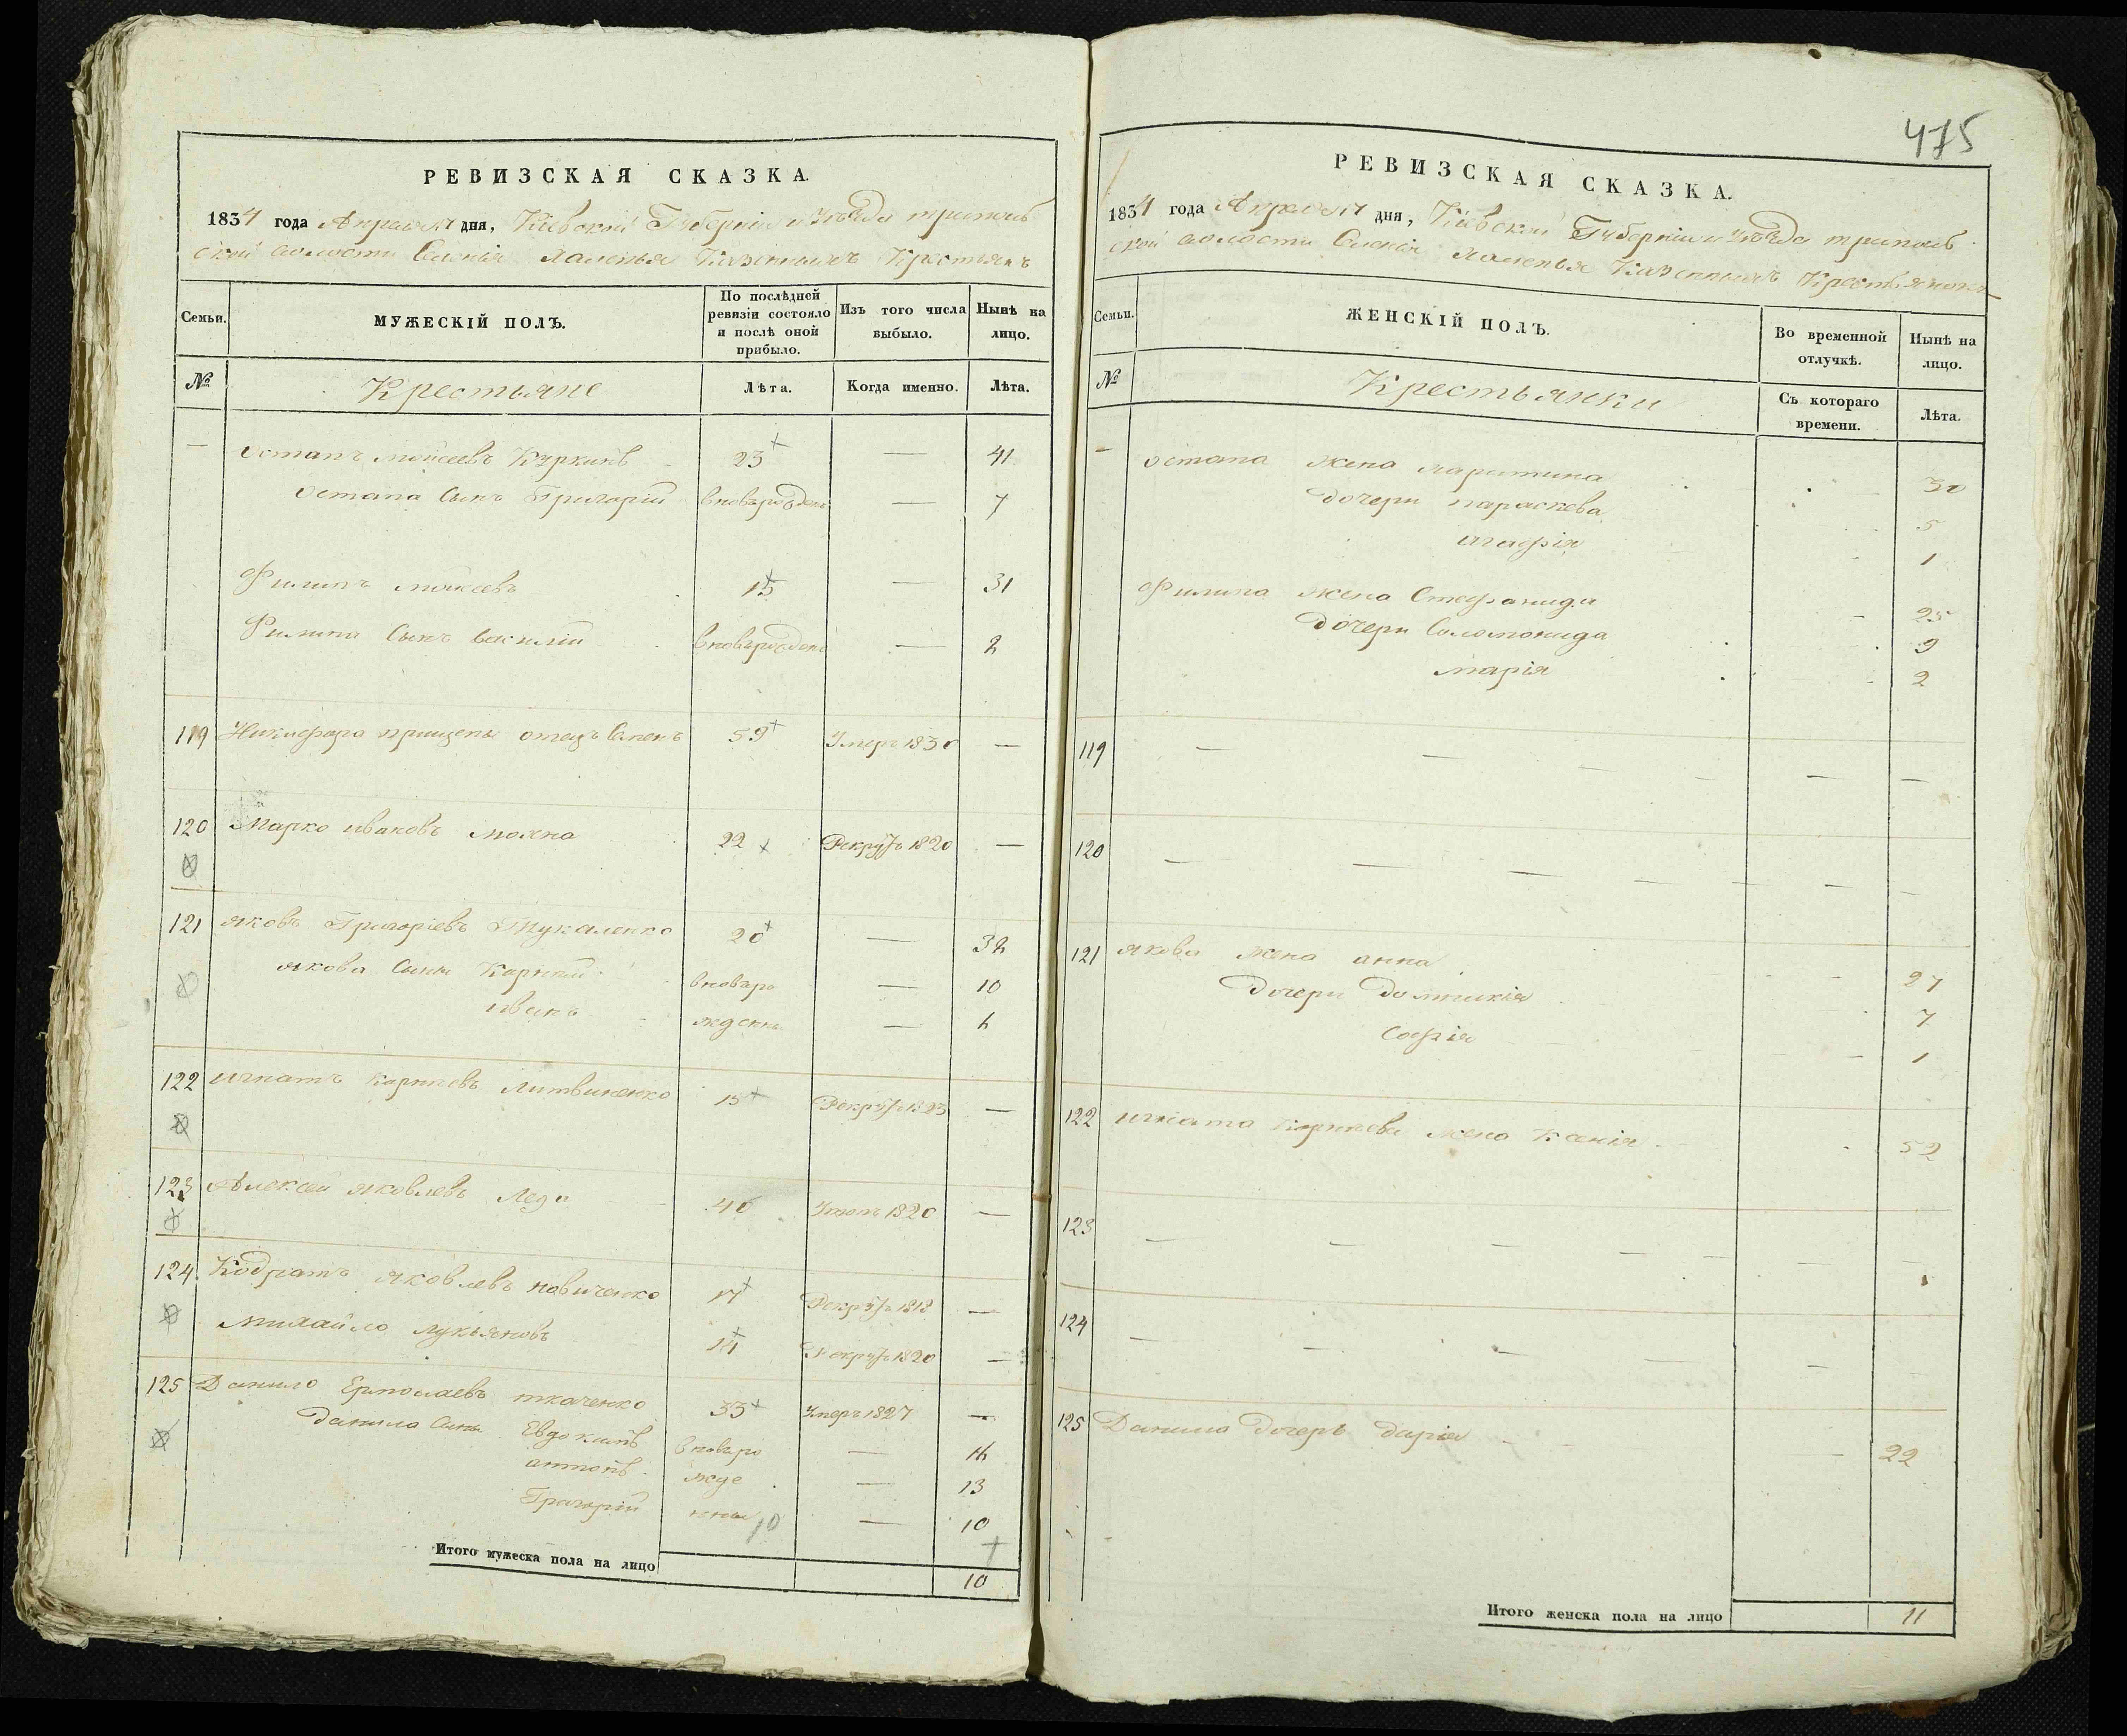 РЕВИЗСКАЯ СКАЗКА.
1834 года Апреля дня, Кіевской Губерніи и уѣзда триполь
ской волости Сленія Халепья Казенныхъ Крестьянъ
Семьи.
МУЖЕСКІЙ ПОЛЪ.
По послѣдней ревизіи состояло и послѣ оной прибыло.
Изъ того числа выбыло.
Нынѣ на лицо.
№
Крестьяне
Лѣта.
Когда именно.
Лѣта.
— Остапъ Моисеевъ 23 — 41
Остапа Сынъ Григорій вновьрожденъ — 7
Филипъ Моисеевъ 15 — 31
Филипа Сынъ Василій вновьрожденъ — 2
119 Никифора прищепы отецъ Семенъ 59 Умеръ 1830 —
120 Марко Ивановъ 22 Рекрутъ 1820 —
121 Яковъ Григоріевъ 20 — 32
Якова Сыны Карпъ вновьро — 10
Иванъ жденны —
122 Игнатъ Карпѣевъ Литвиненко 15 Рекрутъ 1823 —
123 Алексей Яковлевъ Леда 40 1820 —
124 Кодратъ Яковлевъ Новиченко 17 Рекрутъ 1818 —
Михайло Лукьяновъ 14 Рекрутъ 1820 —
125 Данило Ермолаевъ Ткаченко 33 Умеръ 1827 —
Данила Сыны Евдокимъ вновьро —
Антонъ жде — 13
Григорій нны 10 — 10
Итого мужеска пола на лицо 10
475
РЕВИЗСКАЯ СКАЗКА.
1834 года Апреля дня, Кіевской Губерніи и уѣзда триполь
ской волости Сленія Халепья Казенныхъ Крестьянокъ
Семьи.
ЖЕНСКІЙ ПОЛЪ.
Во временной отлучкѣ.
Нынѣ на лицо.
№
Крестьянки
Съ котораго времени.
Лѣта.
— Остапа жена 30
дочери Параскева 5
Агафія 1
Филипа жена Стефанида 25
дочери Соломонида 9
Марія 2
119 — — — — — —
120 — — — — — — —
121 Якова жена Анна 27
дочери Домникія 7
Софія 1
122 Игната Карпѣева жена Ксенія 52
123 — — — — — — —
124 — — — — —
125 Данила дочерь Дарія — 22
Итого женска пола на лицо 11